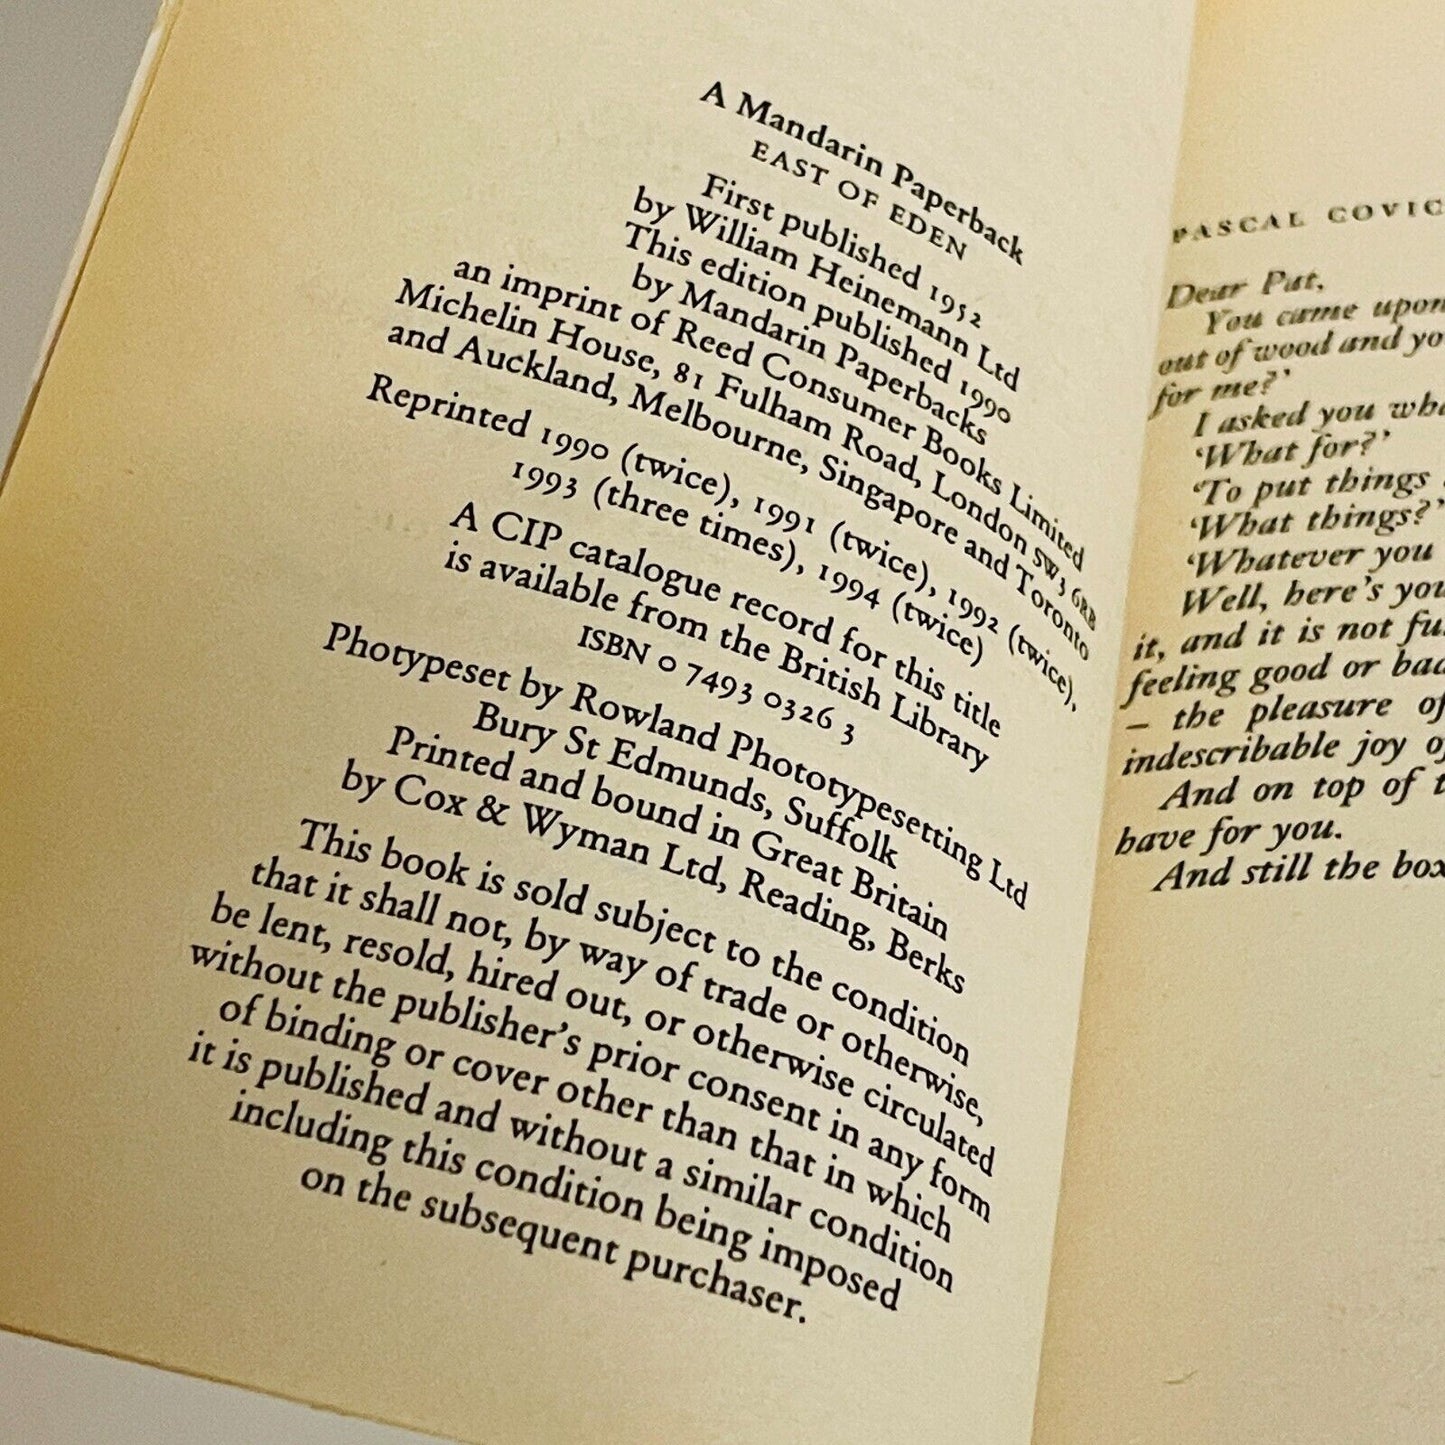 A Mandarin Paperback
EAST OF EDEN
First published 1952
by William Heinemann Ltd
This edition published 1990
by Mandarin Paperbacks
an imprint of Reed Consumer Books Limited
Michelin House, 81 Fulham Road, London SW3 6RB
and Auckland, Melbourne, Singapore and Toronto
Reprinted 1990 (twice), 1991 (twice), 1992 (twice),
1993 (three times), 1994 (twice)
A CIP catalogue record for this title
is available from the British Library
ISBN 0 7493 0326 3
Photypeset by Rowland Phototypesetting Ltd
Bury St Edmunds, Suffolk
Printed and bound in Great Britain
by Cox & Wyman Ltd, Reading, Berks
This book is sold subject to the condition
that it shall not, by way of trade or otherwise,
be lent, resold, hired out, or otherwise circulated
without the publisher's prior consent in any form
of binding or cover other than that in which
it is published and without a similar condition
including this condition being imposed
on the subsequent purchaser.
PASCAL COVIC
Dear Pat,
You came upon
out of wood and yo
for me?'
I asked you wha
'What for?'
'To put things
'What things?'
'Whatever you
Well, here's you
it, and it is not fu
feeling good or bad
– the pleasure of
indescribable joy of
And on top of t
have for you.
And still the box